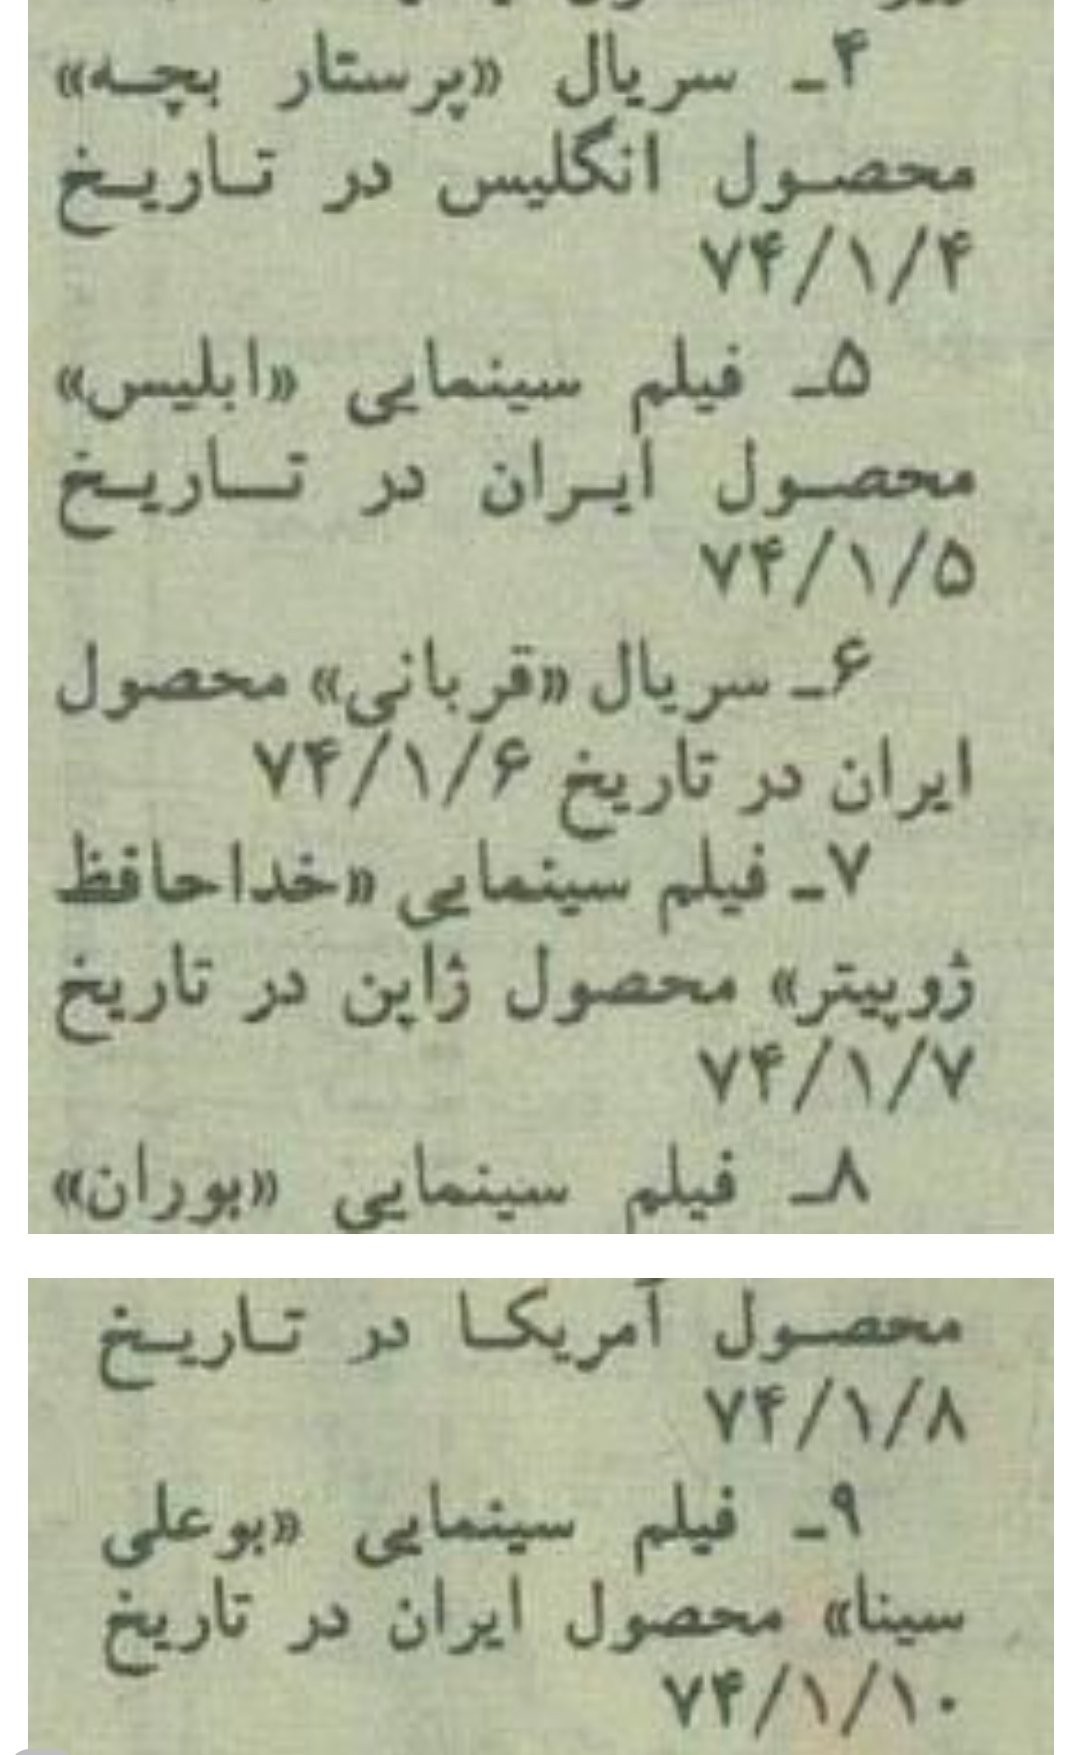 ۴ـ سریال «پرستار بچه»
محصول انگلیس در تاریخ
۷۴/۱/۴
۵ـ فیلم سینمایی «ابلیس»
محصول ایران در تاریخ
۷۴/۱/۵
۶ـ سریال «قربانی» محصول
ایران در تاریخ ۷۴/۱/۶
۷ـ فیلم سینمایی «خداحافظ
ژوپیتر» محصول ژاپن در تاریخ
۷۴/۱/۷
۸ـ فیلم سینمایی «بوران»
محصول آمریکا در تاریخ
۷۴/۱/۸
۹ـ فیلم سینمایی «بوعلی
سینا» محصول ایران در تاریخ
۷۴/۱/۱۰